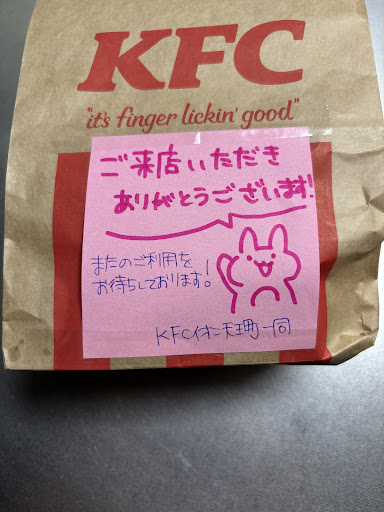 KFC
"it's finger lickin' good"
ご来店いただき
ありがとうございます!
またのご利用を
お待ちしております!
KFCイオン天王町一同